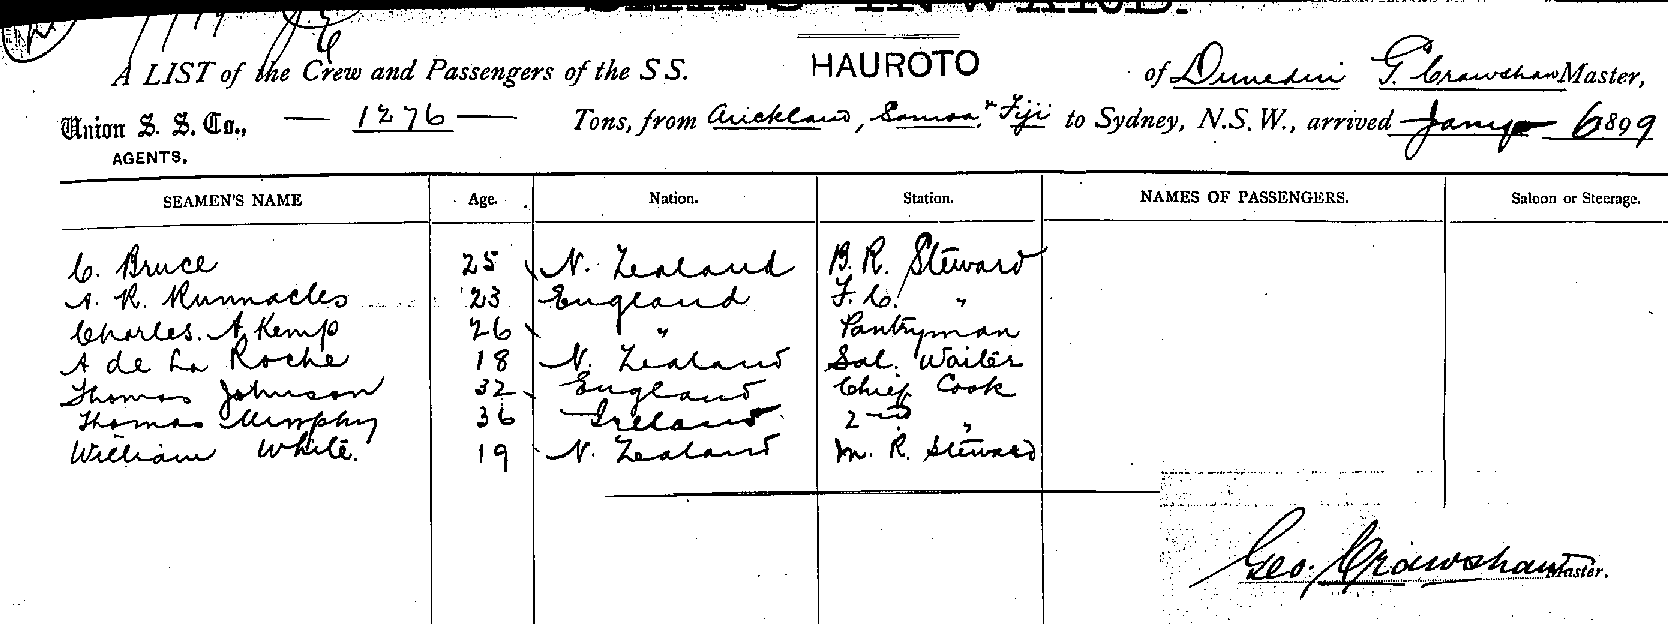 SHIPS INWARD.
A LIST of the Crew and Passengers of the SS. HAUROTO of Dunedin G. Crawshaw Master,
Union S. S. Co., — 1276 — Tons, from Auckland, Samoa, & Fiji to Sydney, N.S.W., arrived Jany 6 899
AGENTS.
SEAMEN'S NAME Age. Nation. Station. NAMES OF PASSENGERS. Saloon or Steerage.
C. Bruce 25 N. Zealand B. R. Steward
A. R. Runnacles 23 England F. C. "
Charles. A Kemp 26 " Pantryman
A de La Roche 18 N. Zealand Sal. Waiter
Thomas Johnson 32 England Chief Cook
Thomas Murphy 36 Ireland 2nd "
William White. 19 N. Zealand M. R. Steward
Geo. Crawshaw Master.